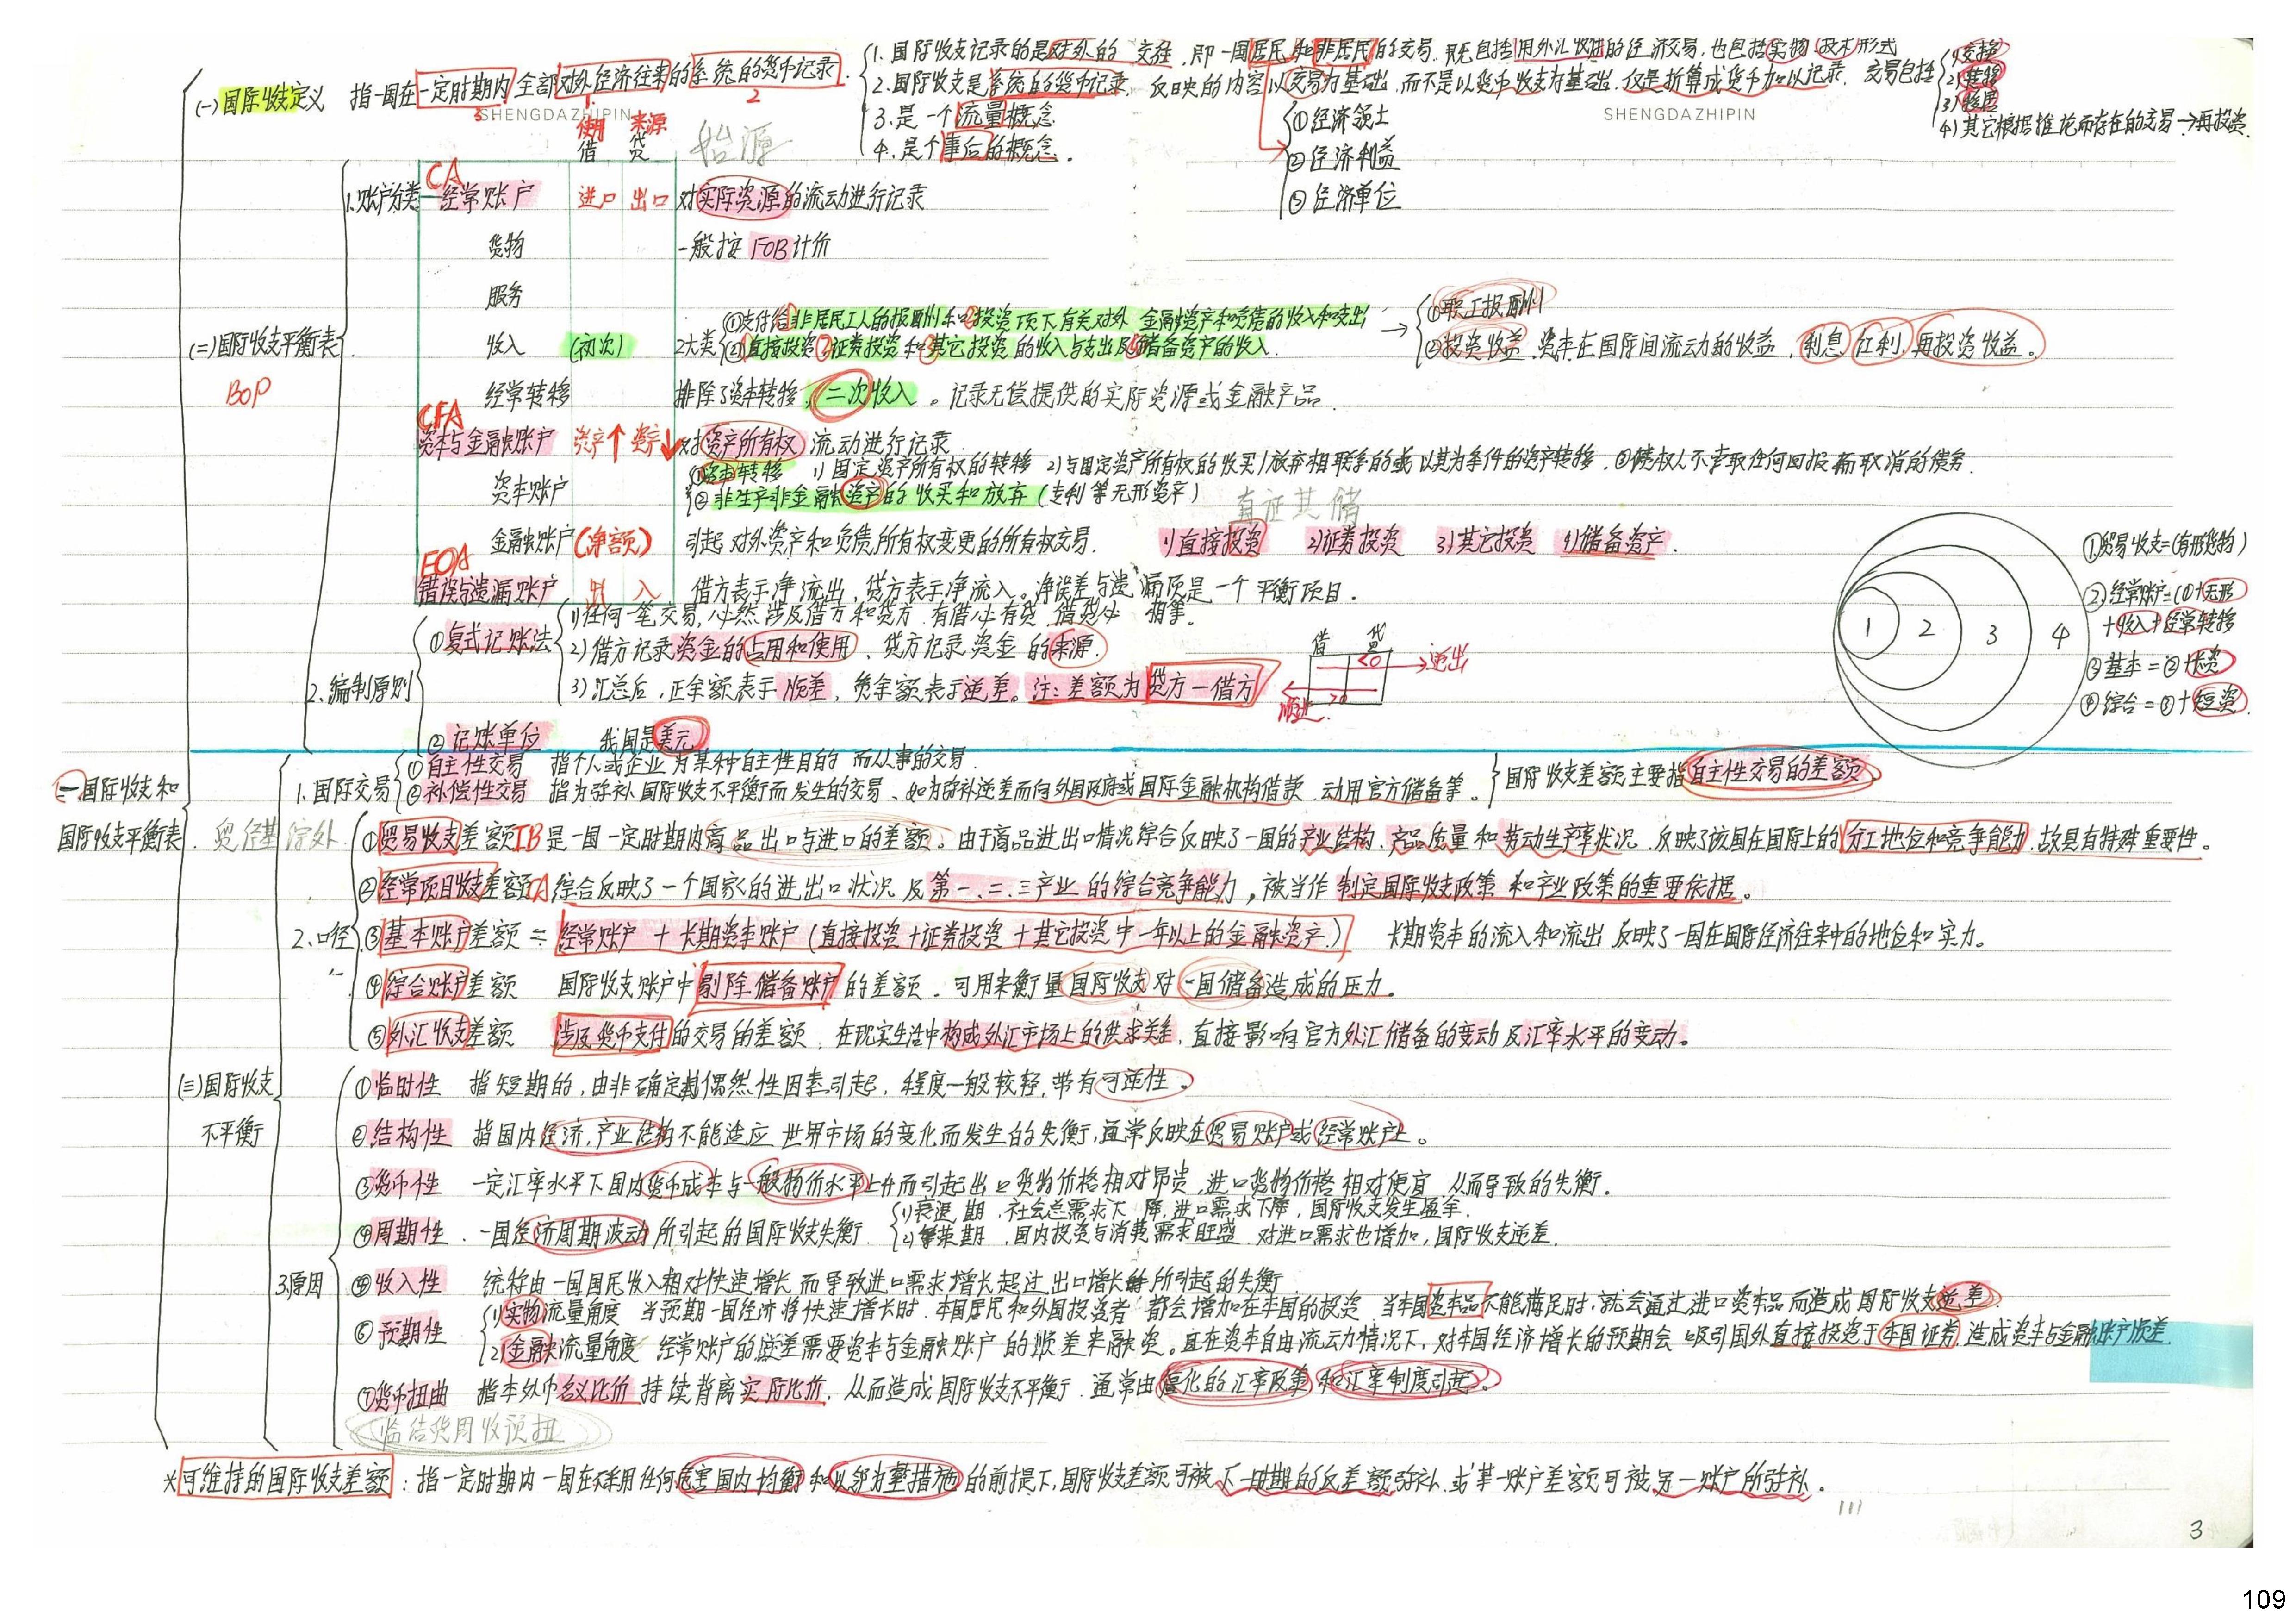 (一)国际收支定义 指一国在一定时期内全部对外经济往来的系统的货币记录.
3 1 2
1.国际收支记录的是对外的交往,即一国居民和非居民的交易.既包括用外汇收付的经济交易,也包括实物、技术形式
2.国际收支是系统的货币记录,反映的内容以交易为基础,而不是以货币收支为基础.仅是折算成货币加以记录.
3.是一个流量概念
4.是个事后的概念.
交易包括
1)交换
2)转移
3)移居
4)其它根据推论而存在的交易→再投资.
①经济领土
②经济利益
③经济单位
SHENGDAZHIPIN
SHENGDAZHIPIN
(二)国际收支平衡表
BOP
1.账户分类
使用 来源
借 贷
CA
经常账户 进口 出口 对实际资源的流动进行记录
货物 一般按FOB计价
服务
收入 (初次) 2大类
①支付给非居民工人的报酬和②投资项下有关对外金融资产和负债的收入和支出
②直接投资 证券投资和其它投资的收入与支出及储备资产的收入.
→ ①职工报酬
②投资收益.资本在国际间流动的收益,利息 红利,再投资收益。
经常转移 排除了资本转移,二次收入。记录无偿提供的实际资源或金融产品.
CFA
资本与金融账户 资产↑ 资产↓ 对资产所有权流动进行记录
资本账户
①资本转移 1)固定资产所有权的转移 2)与固定资产所有权的收买/放弃相联系的或以其为条件的资产转移,③债权人不索取任何回报而取消的债务.
②非生产非金融资产的收买和放弃(专利等无形资产)
直证其储
金融账户(净额) 引起对外资产和负债所有权变更的所有权交易. 1)直接投资 2)证券投资 3)其它投资 4)储备资产.
EOA
错误与遗漏账户 出 入 借方表示净流出,贷方表示净流入。净误差与遗漏项是一个平衡项目.
1 2 3 4
①贸易收支=(有形货物)
②经常账户=(①+无形
+收入+经常转移
③基本=②+长资
④综合=③+短资.
2.编制原则
①复式记账法
1)任何一笔交易,必然涉及借方和贷方 有借必有贷 借贷必相等。
2)借方记录资金的占用和使用、贷方记录资金的来源.
3)汇总后,正余额表示顺差,负余额表示逆差。注:差额为贷方-借方
借 贷
<0 →逆出
顺进 >0
②记账单位 我国是美元
一国际收支和
国际收支平衡表.
(三)国际收支
不平衡
1.国际交易
①自主性交易 指个人或企业为某种自主性目的而从事的交易.
②补偿性交易 指为弥补国际收支不平衡而发生的交易、如为弥补逆差而向外国政府或国际金融机构借款,动用官方储备等。
国际收支差额主要指自主性交易的差额
贸经基综外
2.口径
①贸易收支差额TB是一国一定时期内商品出口与进口的差额。由于商品进出口情况综合反映了一国的产业结构、产品质量和劳动生产率状况.反映了该国在国际上的分工地位和竞争能力,故具有特殊重要性。
②经常项目收支差额CA综合反映了一个国家的进出口状况及第一、二、三产业的综合竞争能力,被当作制定国际收支政策和产业政策的重要依据。
③基本账户差额=经常账户+长期资本账户(直接投资+证券投资+其它投资中一年以上的金融资产.) 长期资本的流入和流出反映了一国在国际经济往来中的地位和实力。
④综合账户差额 国际收支账户中剔除储备账户的差额.可用来衡量国际收支对一国储备造成的压力.
⑤外汇收支差额 涉及货币支付的交易的差额,在现实生活中构成外汇市场上的供求关系,直接影响官方外汇储备的变动及汇率水平的变动。
3.原因
①临时性 指短期的,由非确定或偶然性因素引起,程度一般较轻,带有可逆性。
②结构性 指国内经济,产业结构不能适应世界市场的变化而发生的失衡,通常反映在贸易账户或经常账户上。
③货币性 一定汇率水平下国内货币成本与一般物价水平上升而引起出口货物价格相对昂贵,进口货物价格相对便宜 从而导致的失衡.
④周期性.一国经济周期波动所引起的国际收支失衡.
1)衰退期,社会总需求下降,进口需求下降,国际收支发生盈余.
2)繁荣期,国内投资与消费需求旺盛 对进口需求也增加,国际收支逆差.
⑤收入性 统称由一国国民收入相对快速增长而导致进口需求增长超过出口增长所引起的失衡
⑥预期性
1)实物流量角度 当预期一国经济将快速增长时.本国居民和外国投资者都会增加在本国的投资 当本国资本品不能满足时,就会通过进口资本品而造成国际收支逆差.
2)金融流量角度 经常账户的逆差需要资本与金融账户的顺差来融资。且在资本自由流动情况下,对本国经济增长的预期会吸引国外直接投资于本国证券,造成资本与金融账户顺差.
⑦货币扭曲 指本外币名义比价持续背离实际比价,从而造成国际收支不平衡.通常由僵化的汇率政策和汇率制度引起。
临结货周收预扭
*可维持的国际收支差额:指一定时期内一国在不采用任何危害国内均衡和以邻为壑措施的前提下,国际收支差额可被下一时期的反差额弥补.或某一账户差额可被另一账户所弥补.
3
109